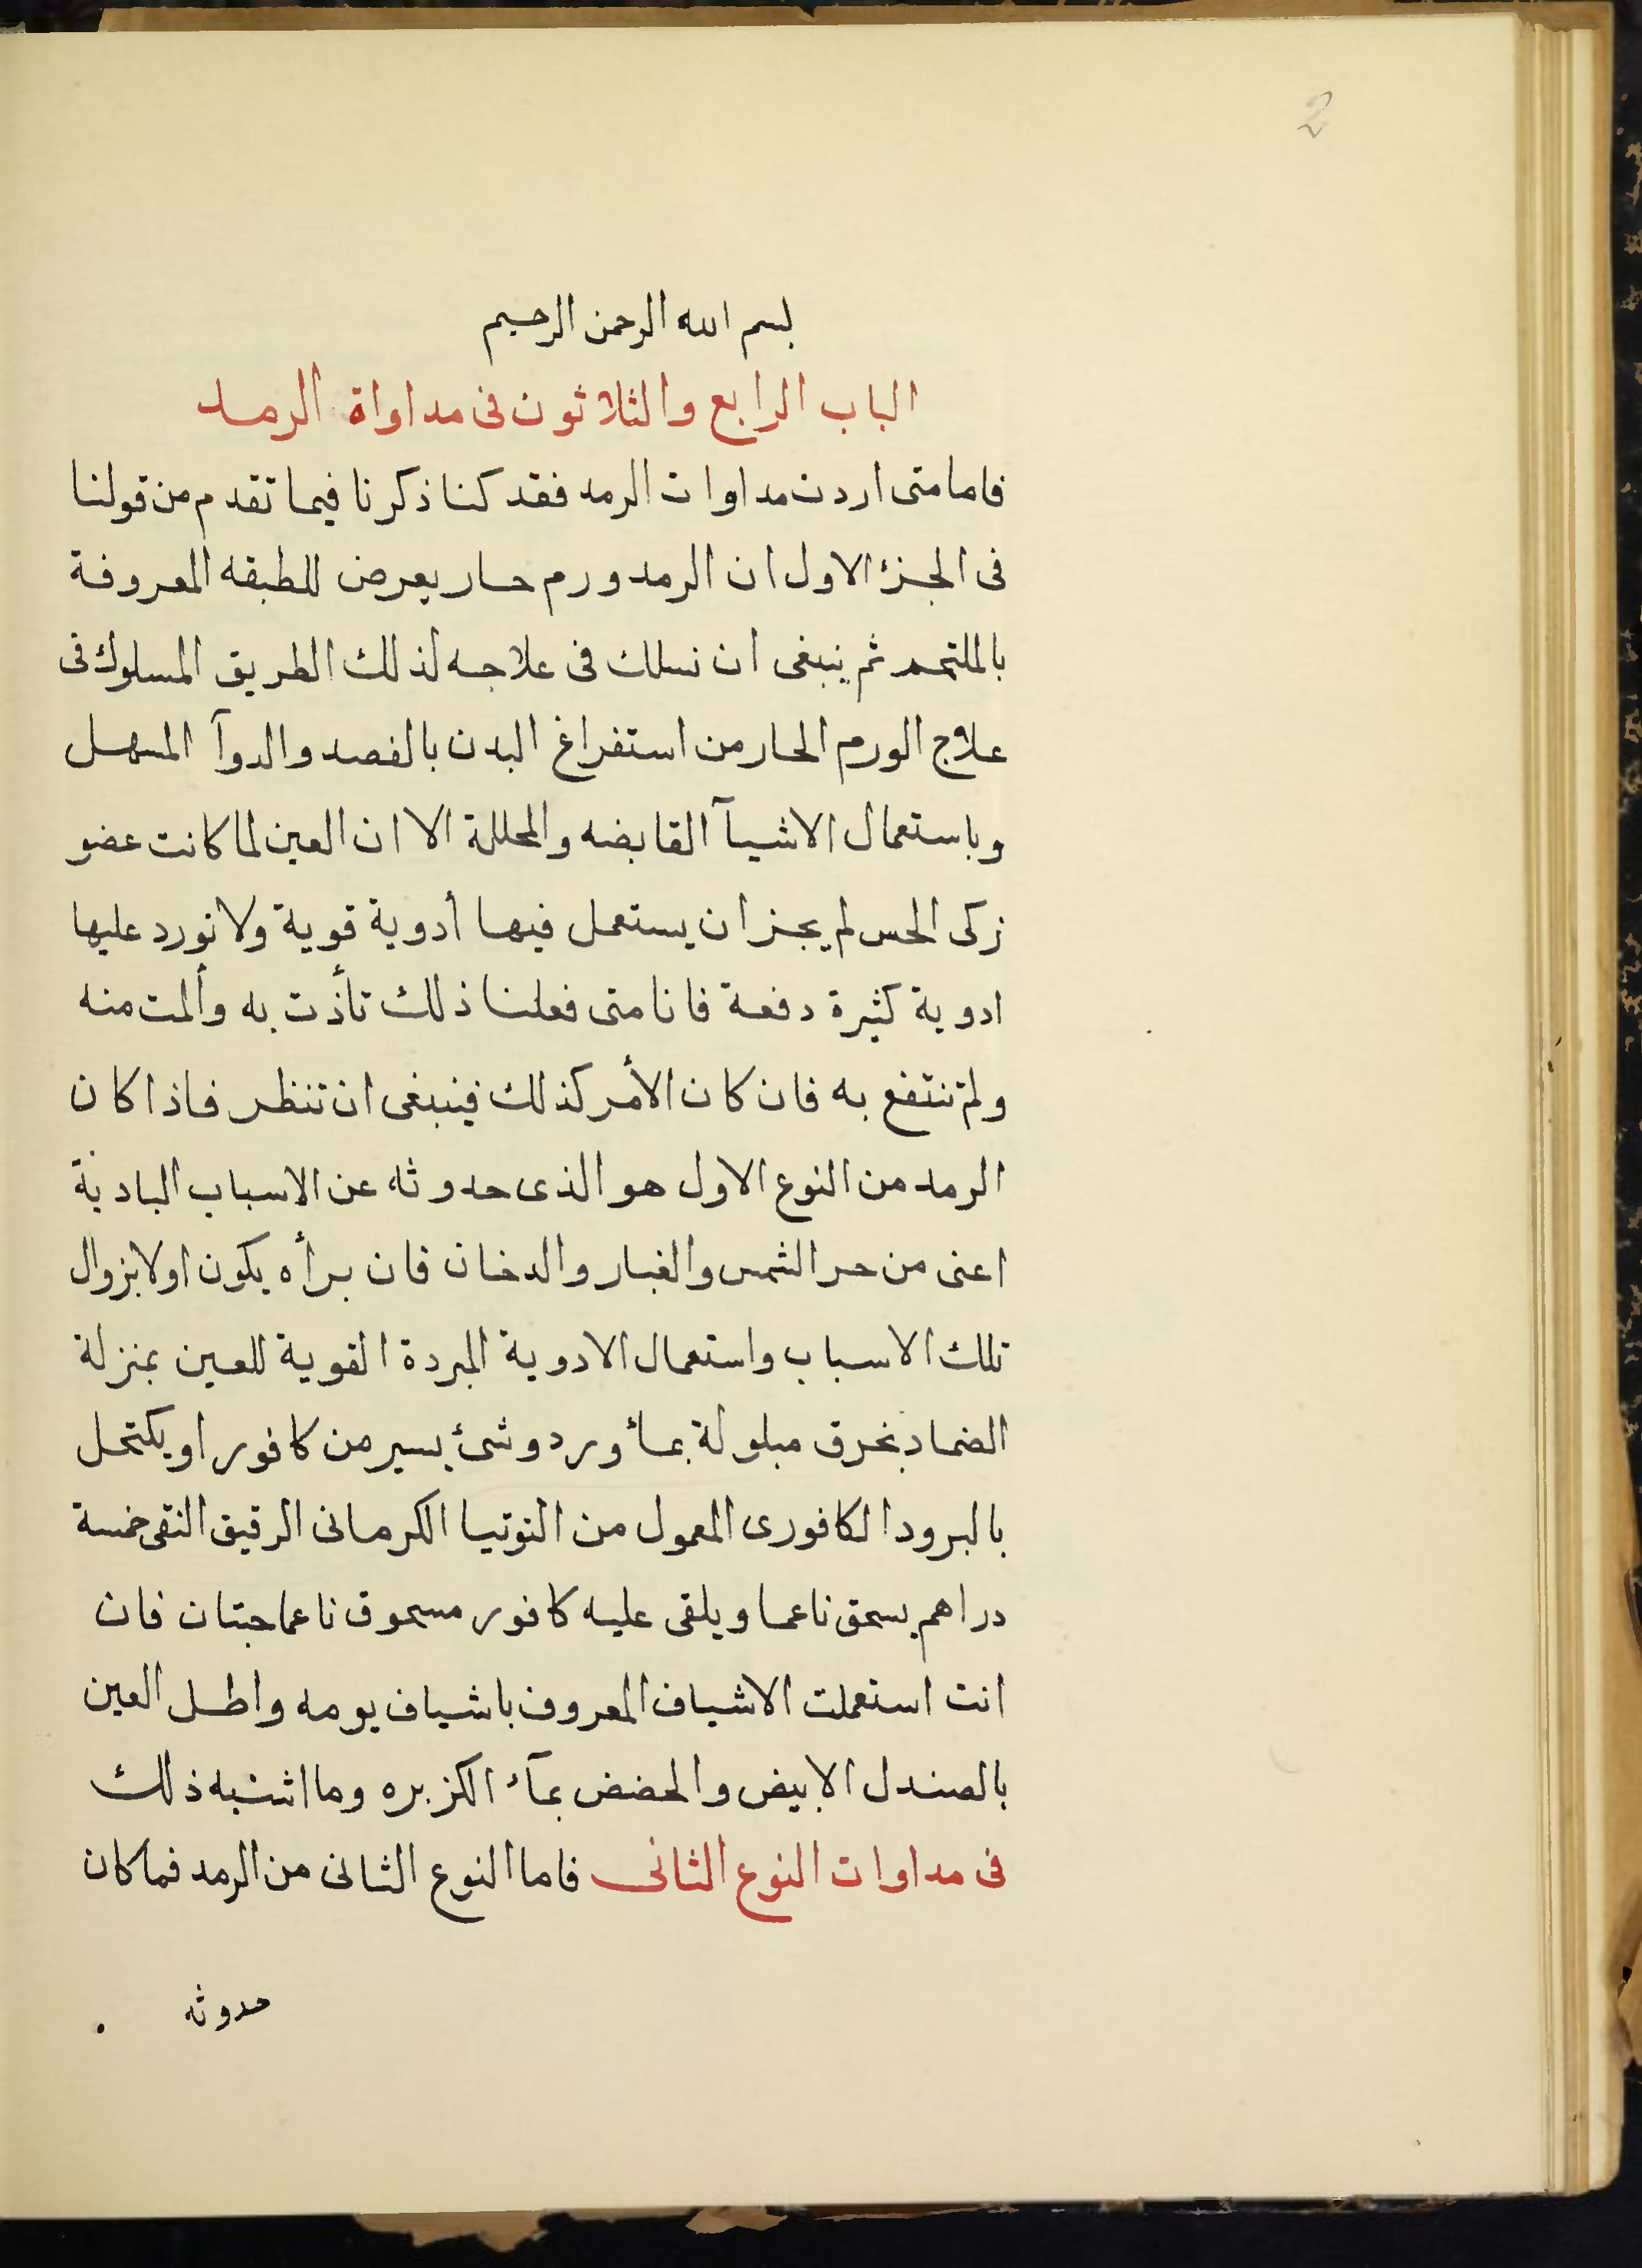 2
بسم الله الرحمن الرحيم
الباب الرابع والثلاثون فى مداواة الرمد
فاما متى اردت مداوات الرمد فقد كنا ذكرنا فيما تقدم من قولنا
فى الجزئ الاول ان الرمد ورم حار يعرض للطبقه المعروفة
بالملتحمد ثم ينبغى ان نسلك فى علاجه لذلك الطريق المسلوك فى
علاج الورم الحار من استفراغ البدن بالفصد والدوآ المسهل
وباستعمال الاشيآ القابضه والمحللة الا ان العين لما كانت عضو
زكى الحس لم يجز ان يستعمل فيها أدوية قوية ولا نورد عليها
ادوية كثيرة دفعة فانا متى فعلنا ذلك تأذت به وألمت منه
ولم تنتفع به فان كان الأمر كذلك فينبغى ان تنظر فاذا كان
الرمد من النوع الاول هو الذى حدوثه عن الاسباب البادية
اعنى من حر الشمس والغبار والدخان فان برأه يكون اولا بزوال
تلك الاسباب واستعمال الادوية المبردة القوية للعين بمنزلة
الضماد بخرق مبلولة بمأ ورد وشئ يسير من كافور او يكتحل
بالبرود الكافورى المعمول من التوتيا الكرمانى الرقيق النقى خمسة
دراهم يسحق ناعما ويلقى عليه كافور مسحوق ناعما حبتان فان
انت استعملت الاشياف المعروف باشياف يومه واطل العين
بالصندل الابيض والحضض بمآء الكزبره وما اشبه ذلك
فى مداوات النوع الثانى فاما النوع الثانى من الرمد فما كان
حدوثه